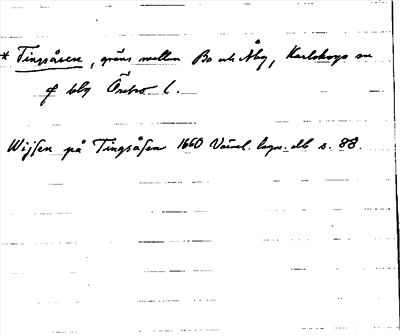 * Tingsåsen, gräns mellan Bo och Åby, Karlskoga sn
Örebro l.
Wijsen på Tingsåsen 1660 s. 88.